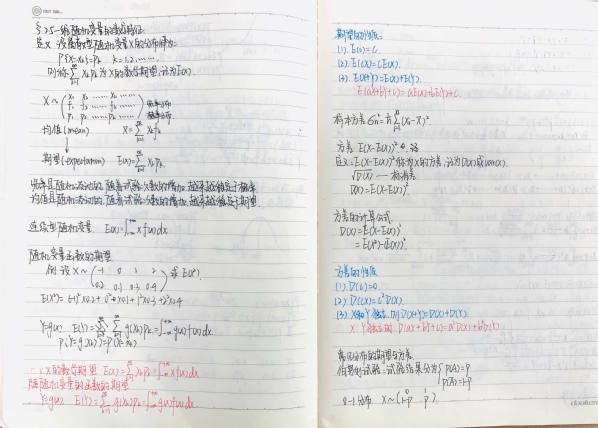 §2.5 一维随机变量的数字特征
定义 设离散型随机变量X的分布律为
P{X=xk}=pk k=1,2,……
则称∑xkpk为X的数学期望,记为E(X)
X~
均值(mean) X̄=∑xkfk
期望(expectation) E(X)=∑xkpk
频率是随机波动的,随着试验次数的增加,越来越接近于概率
均值是随机波动的,随着试验次数的增加,越来越接近于期望.
连续型随机变量 E(X)=∫xf(x)dx
随机变量函数的期望
例 设X~(-1 0 1 2
0.2 0.1 0.3 0.4) 求E(X²)
E(X²)=(-1)²×0.2+0²×0.1+1²×0.3+2²×0.4
Y=g(X)
1. X的数学期望 E(X)=∑xkpk=∫xf(x)dx
随机变量的函数的期望
Y=g(X) E(Y)=∑g(xk)pk=∫g(x)f(x)dx
期望的性质:
(1). E(c)=c.
(2). E(cX)=cE(X).
(3). E(X+Y)=E(X)+E(Y).
E(aX+bY+c)=aE(X)+bE(Y)+c.
样本方差
方差 E(X-E(X))²
定义:E(X-E(X))²称为X的方差,记为D(X)或Var(X).
√D(X) — 标准差
D(X)=E(X-E(X))²
方差的计算公式
D(X)=E(X-E(X))²
=E(X²)-(E(X))².
方差的性质
(1). D(c)=0.
(2). D(cX)=c²D(X).
(3). X和Y独立,则D(X+Y)=D(X)+D(Y).
X.Y独立时 D(aX+bY+c)=a²D(X)+b²D(Y)
常见分布的期望与方差
伯努利试验:试验结果分为{P(A)=p
P(Ā)=1-p
0-1分布 X~(0 1
1-p p).